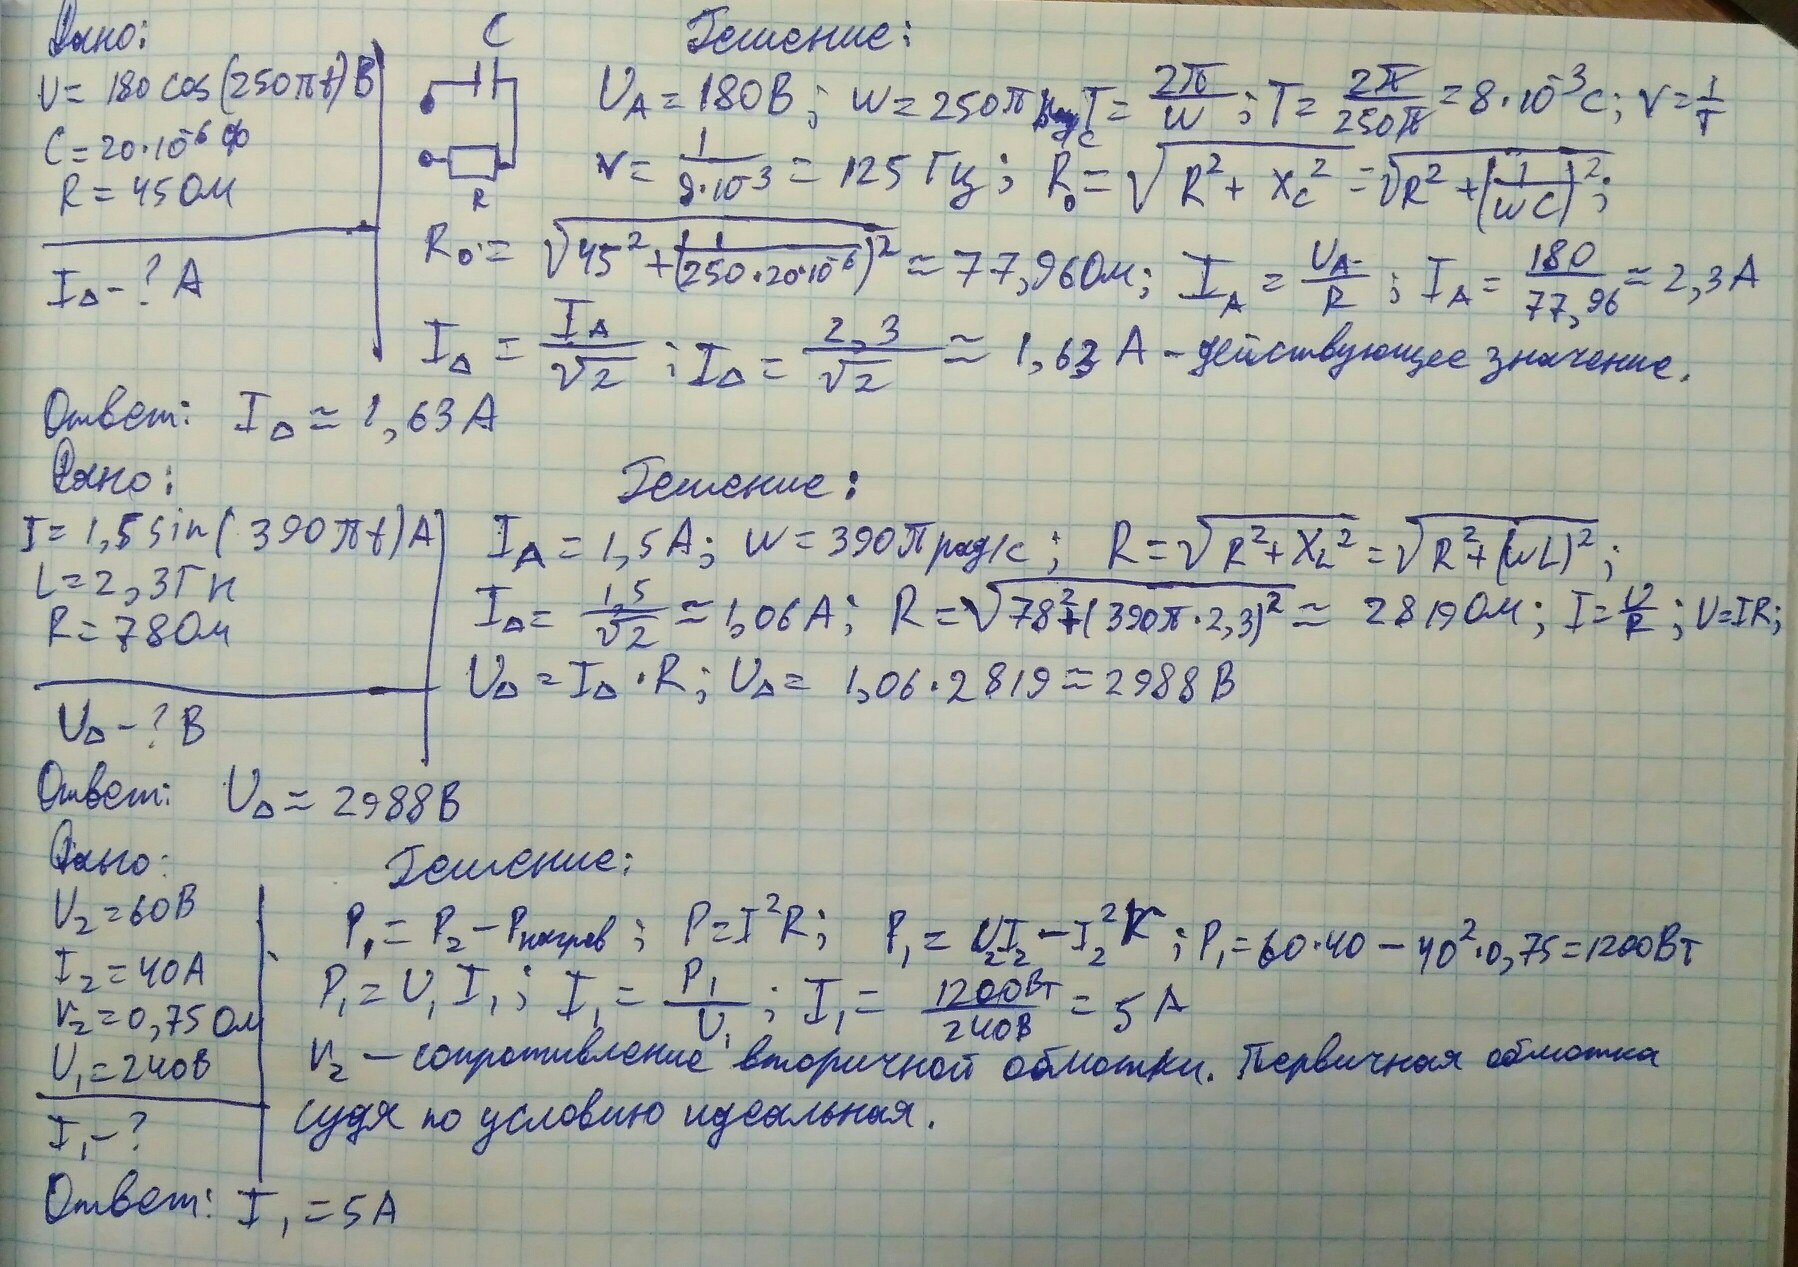 Дано:
C
Решение:
U = 180 cos(250πt) В
U_A = 180В; w = 250π рад/с T = 2π/w; T = 2π/250π = 8·10⁻³ с; ν = 1/T
C = 20·10⁻⁶ Ф
R = 45 Ом
R
ν = 1/8·10⁻³ = 125 Гц; R₀ = √(R² + X_C²) = √(R² + (1/wC)²);
I_Д - ? А
R₀ = √(45² + (1/250·20·10⁻⁶)²) ≈ 77,96 Ом; I_A = U_A/R; I_A = 180/77,96 ≈ 2,3 А
I_Д = I_A/√2; I_Д = 2,3/√2 ≈ 1,63 А - действующее значение.
Ответ: I_Д ≈ 1,63 А
Дано:
Решение:
I = 1,5 sin(390πt) А
L = 2,3 Гн
R = 78 Ом
U_Д - ? В
I_A = 1,5 А; w = 390π рад/с; R = √(R² + X_L²) = √(R² + (wL)²);
I_Д = 1,5/√2 ≈ 1,06 А; R = √(78² + (390π·2,3)²) ≈ 2819 Ом; I = U/R; U = IR;
U_Д = I_Д · R; U_Д = 1,06·2819 ≈ 2988 В
Ответ: U_Д ≈ 2988 В
Дано:
Решение:
U₂ = 60В
I₂ = 40А
r₂ = 0,75 Ом
U₁ = 240В
I₁ - ?
P₁ = P₂ - Pнагрев; P = I²R; P₁ = U₂I₂ - I₂²r; P₁ = 60·40 - 40²·0,75 = 1200 Вт
P₁ = U₁I₁; I₁ = P₁/U₁; I₁ = 1200Вт/240В = 5 А
r₂ - сопротивление вторичной обмотки. Первичная обмотка
судя по условию идеальная.
Ответ: I₁ = 5 А